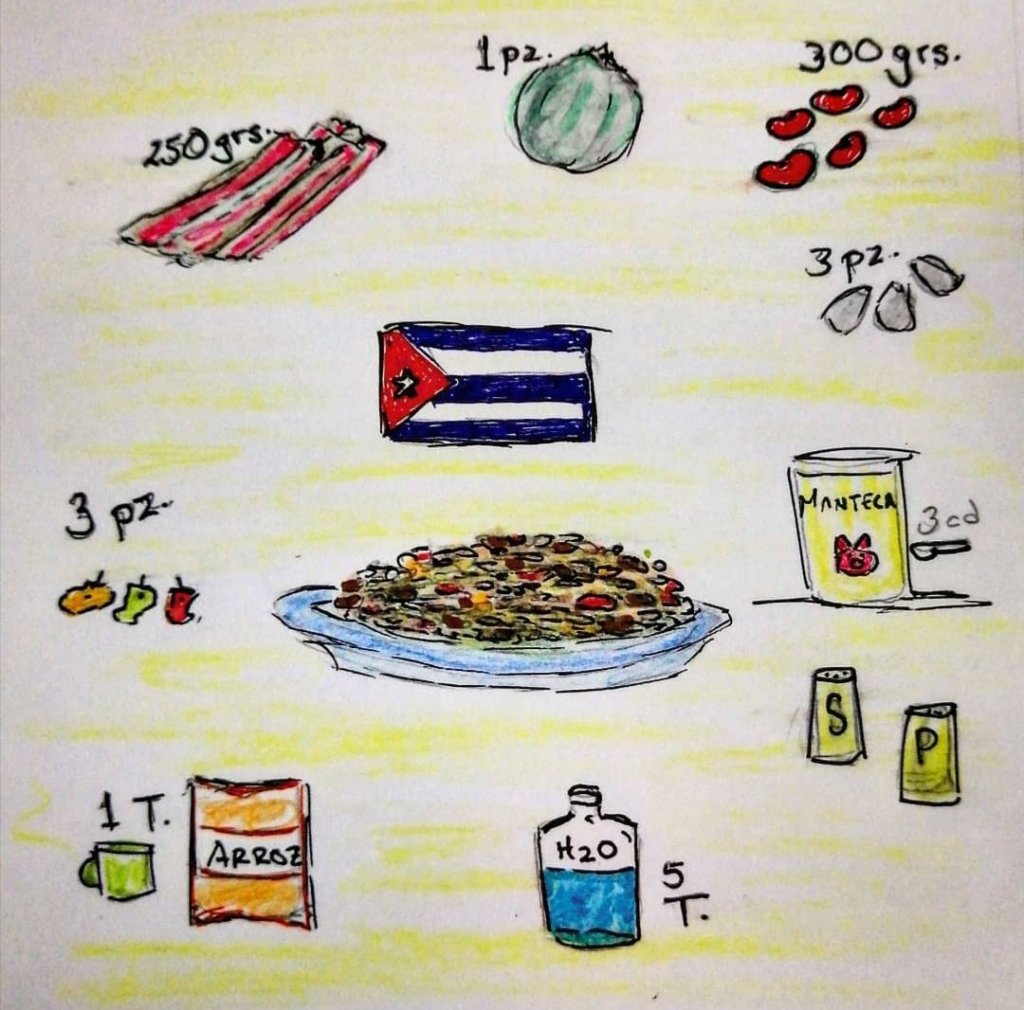 1 pz.
300 grs.
250 grs.
3 pz.
3 pz.
MANTECA
3 cd
S
P
1 T.
ARROZ
H2O
5 T.